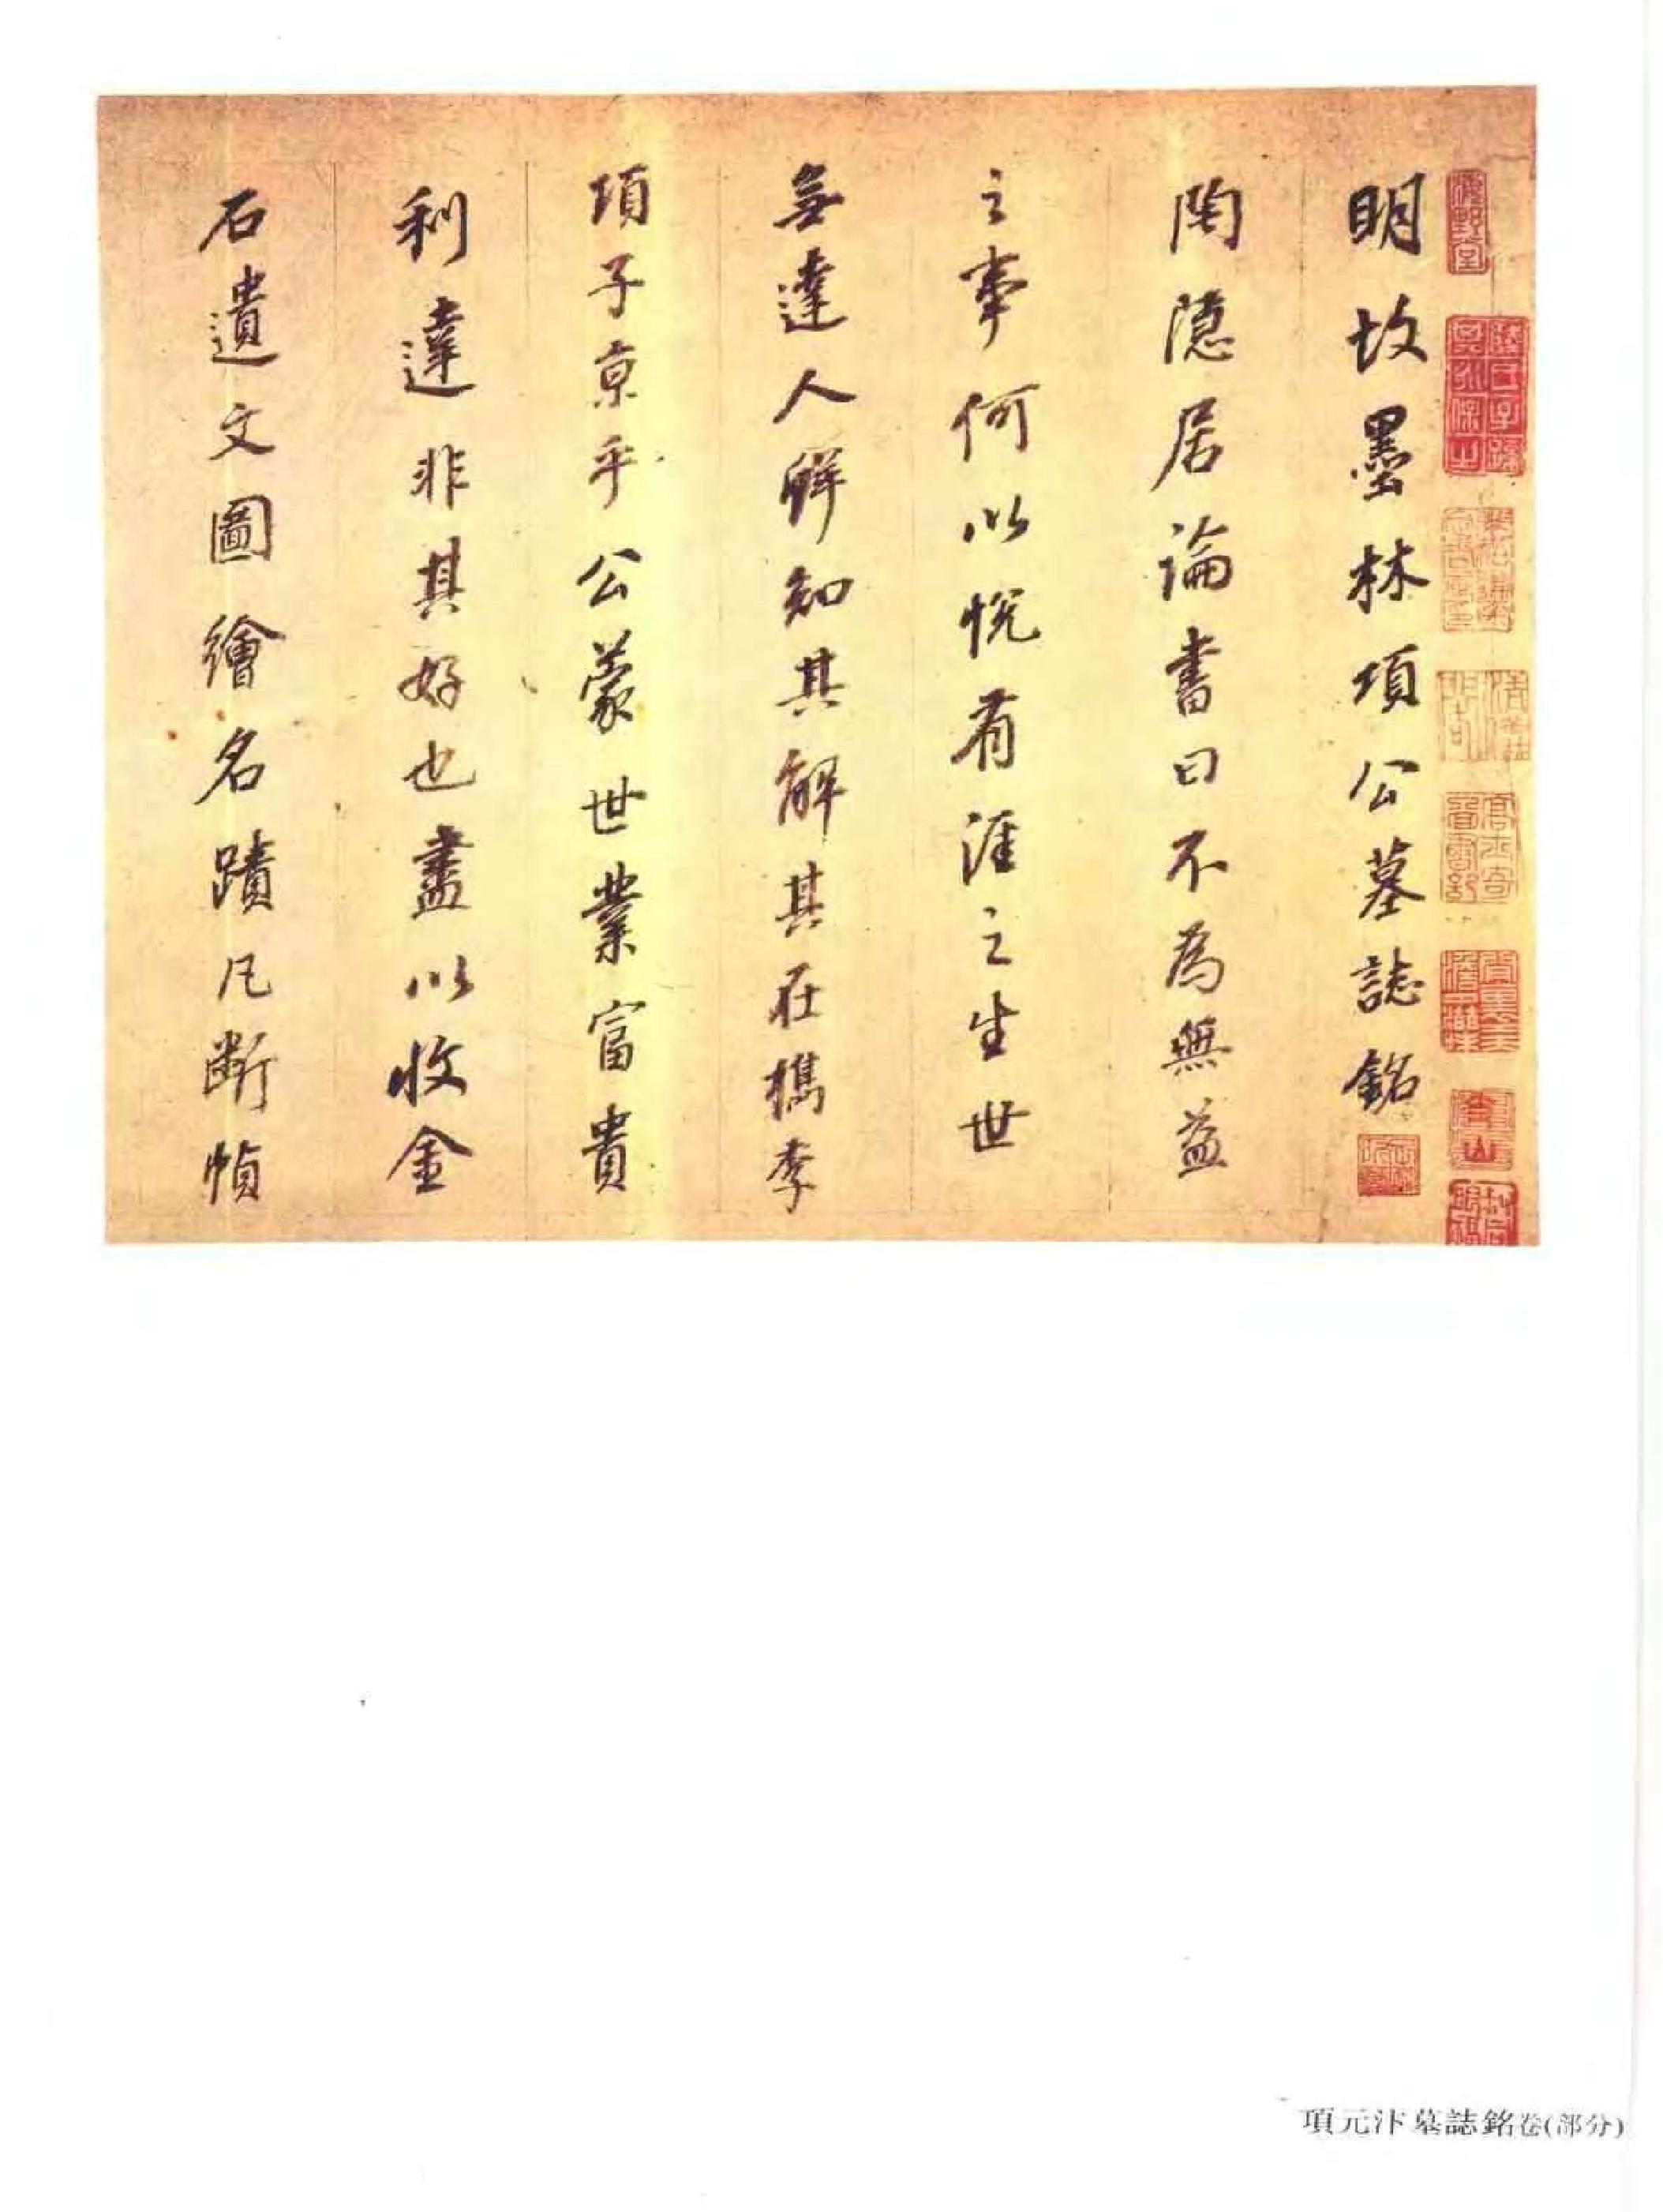 明故墨林項公墓誌銘
陶隱居論書曰不為無益
之事何以悅有涯之生世
無達人鮮知其解其在檇李
項子京乎公蒙世業富貴
利達非其好也盡以收金
石遺文圖繪名蹟凡斷幀
高士奇
項元汴墓誌銘卷(部分)